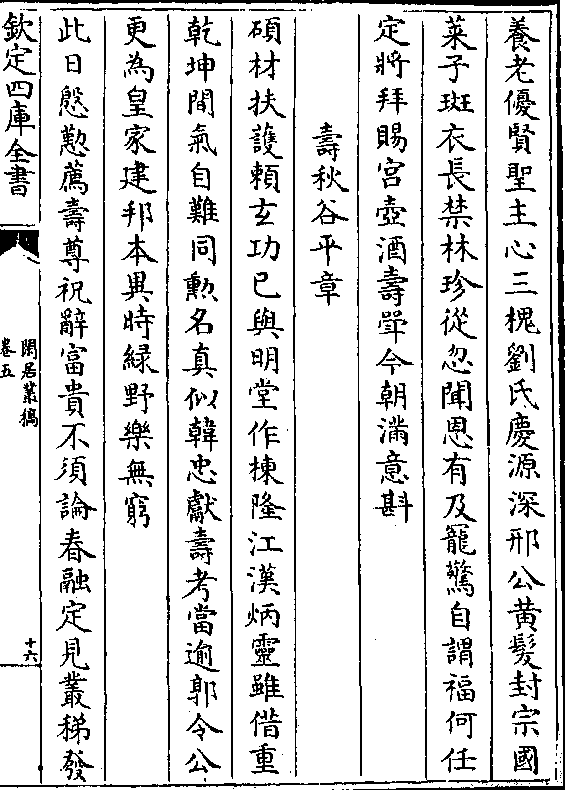 養老優賢聖主心三槐劉氏慶源深邢公黄髪封宗國
萊子斑衣長禁林珍從忽聞恩有及寵驚自謂福何任
定將拜賜宫壺酒壽斝今朝滿意斟
壽秋谷平章
碩材扶護頼玄功已與明堂作棟隆江漢炳靈雖借重
乾坤間氣自難同勲名真似韓忠獻壽考當逾郭令公
更為皇家建邦本異時緑野樂無窮
此日慇懃薦壽尊祝辭富貴不須論春融定見叢稊發
欽定四庫全書
閒居叢稿
卷五
十六